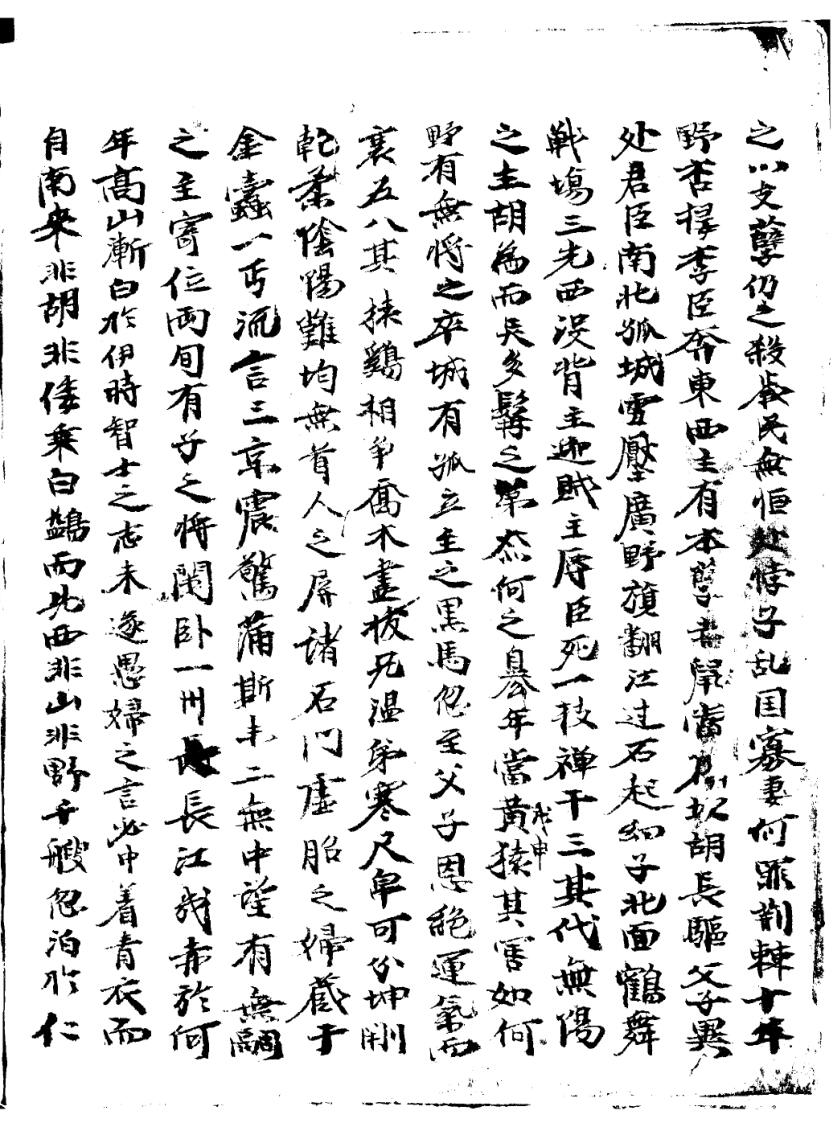 之以支孽仍之殺戮民無恒处悖子乱国寡妻何罪荊棘十年
野杏李臣奔東西主有本孽老鼠當胡長驅父子異
处君臣南北孤城雪壓廣野旗翻江过石起細子北面鶴舞
戦塲三先西沒背主迎賊主辱臣死一枝禅干三其代無陽
之主胡為而吳多髯之葉柰何之年當黃猿戊申其害如何
野有無將之卒城有孤立主之黒馬忽至父子恩絶運氣而
衰五八其猿鷄相爭喬木盡拔兄温弟寒尺自可分坤剛
乾柔陰陽難均無首人之屏諸石門虛胎之婦蔵于
金蠹一丐流言三京震驚蒲斯未二無中望有無嗣
之主寄位両旬有子之將閑卧一州長江幾赤於何
年髙山漸白於伊時智士之志未遂愚婦之言必中着青衣而
自南來非胡非倭乘白鷁而西非山非野千艘忽泊於仁